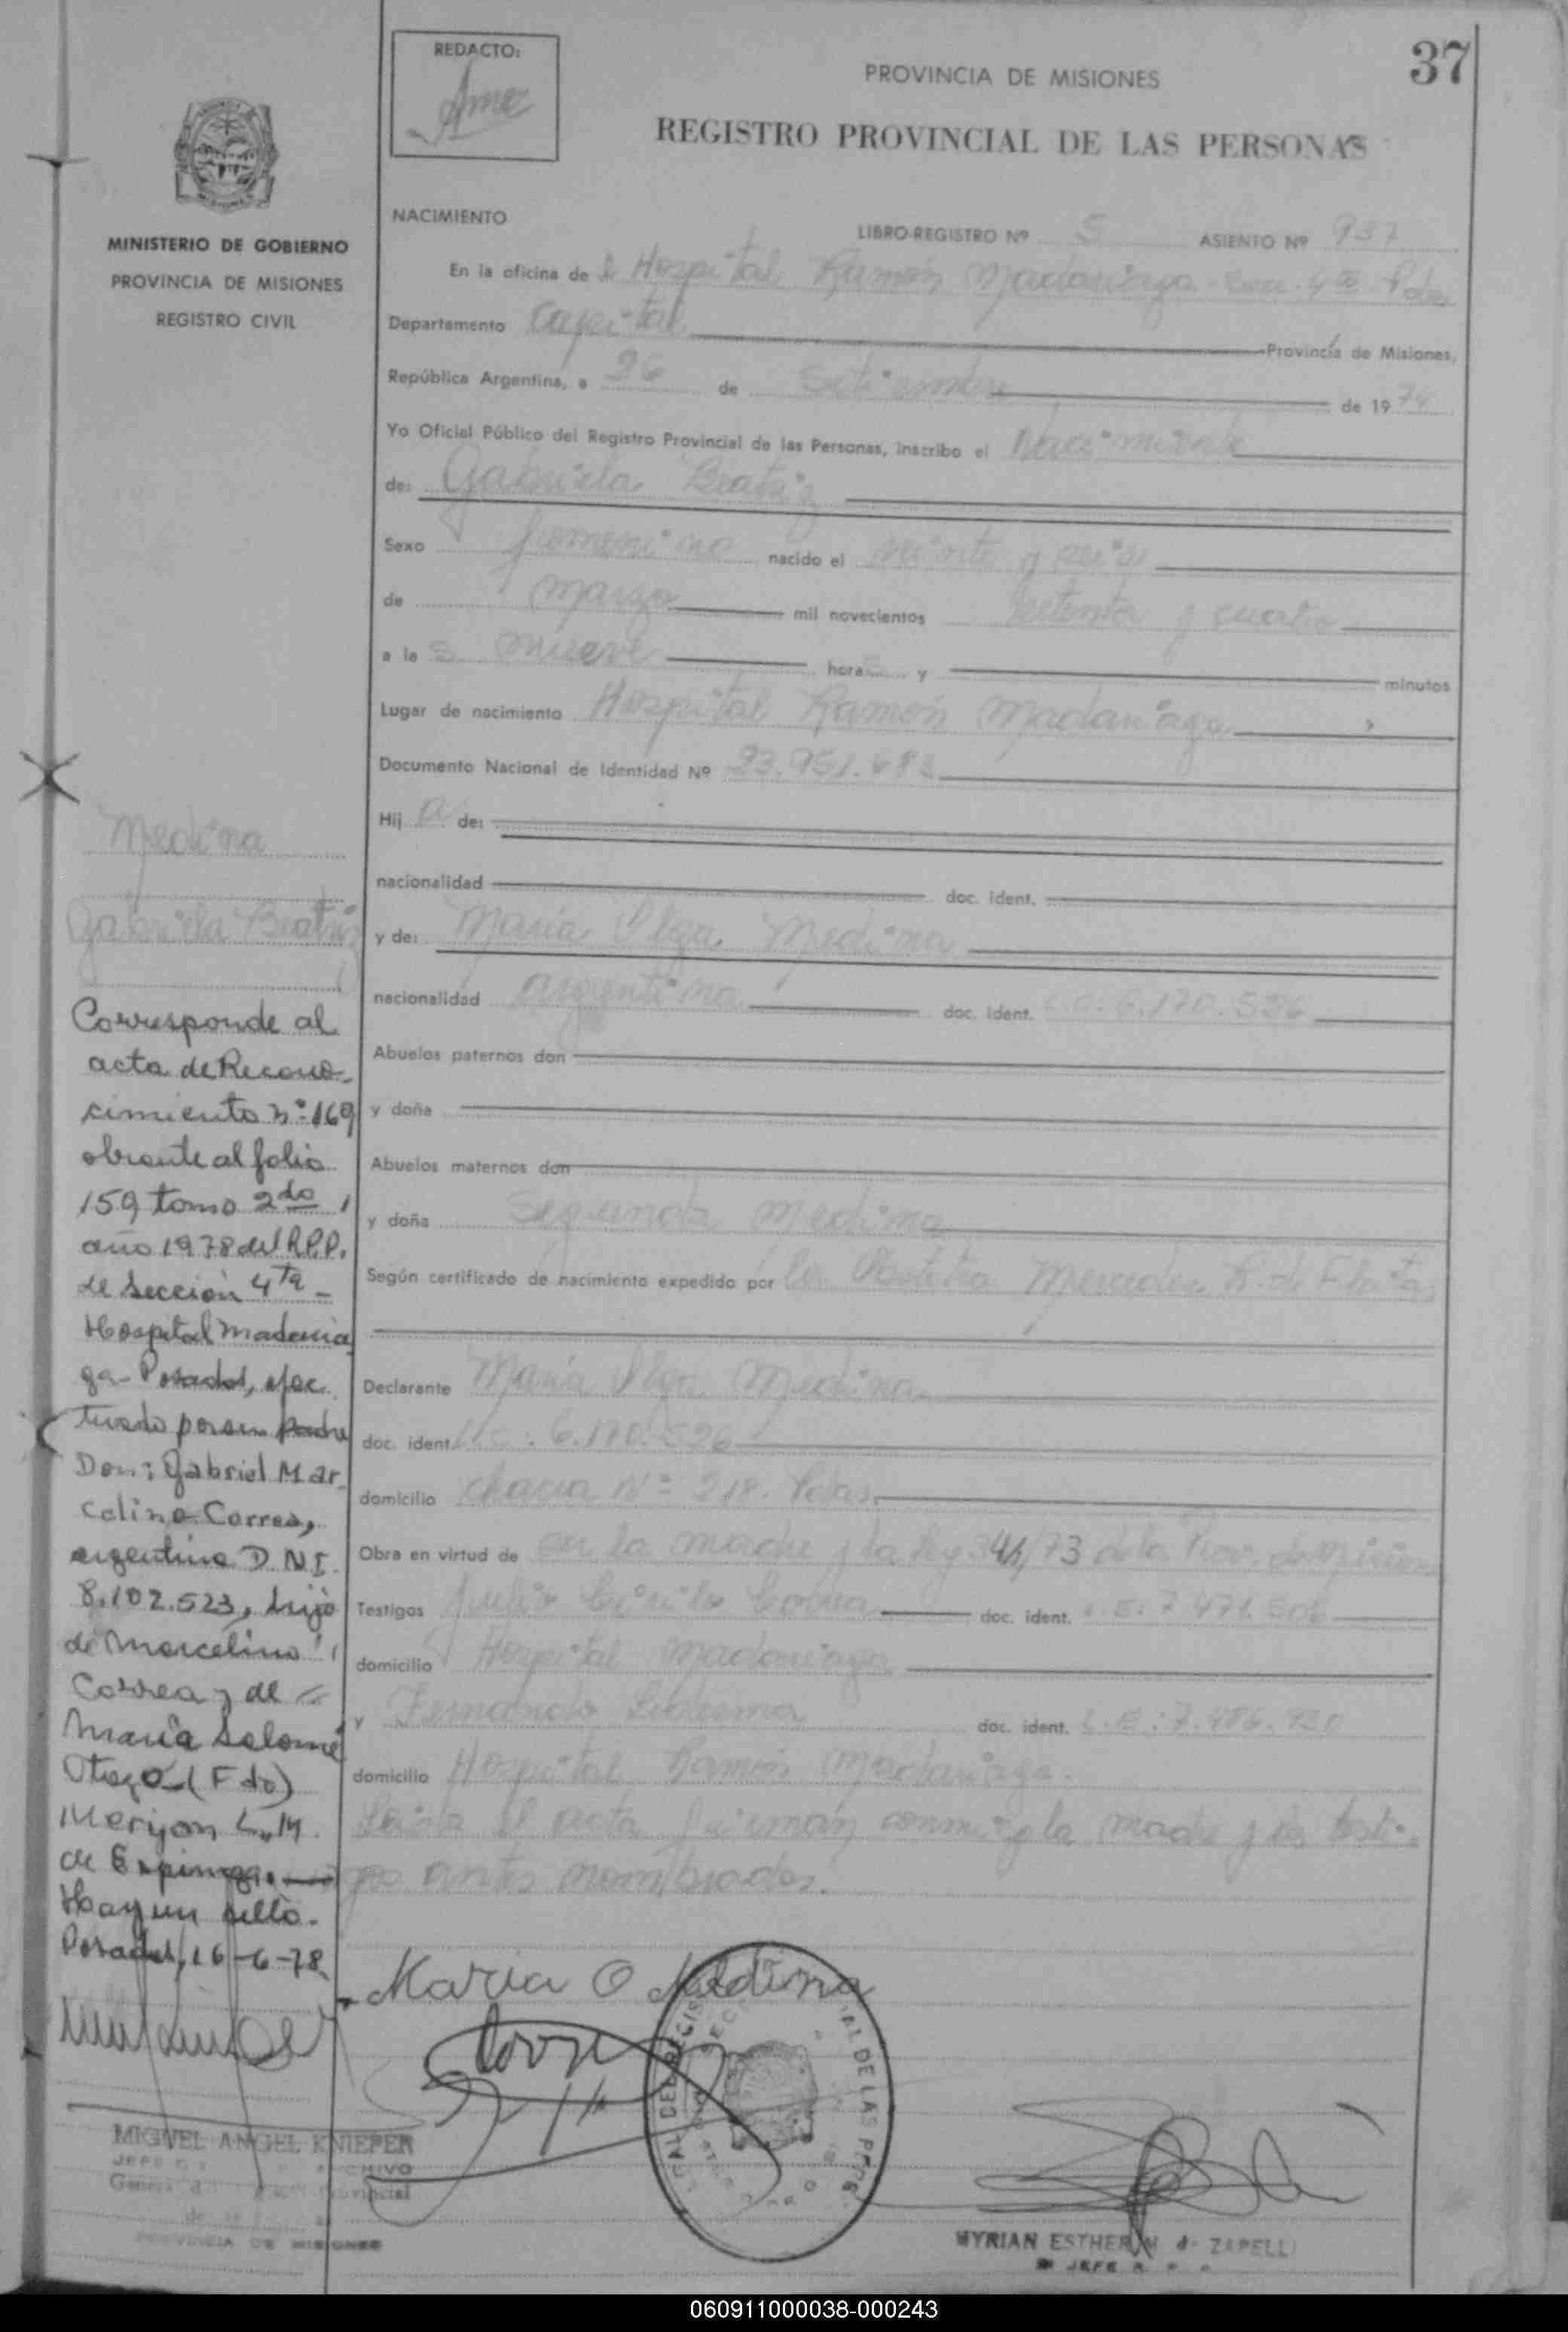 37
REDACTO:
PROVINCIA DE MISIONES
REGISTRO PROVINCIAL DE LAS PERSONAS
MINISTERIO DE GOBIERNO
PROVINCIA DE MISIONES
REGISTRO CIVIL
NACIMIENTO
LIBRO-REGISTRO Nº 5 ASIENTO Nº 937
En la oficina de Hospital Ramón Madariaga 4ta Pdas
Departamento Capital Provincia de Misiones,
República Argentina, a 26 de Setiembre de 1974
Yo Oficial Público del Registro Provincial de las Personas, inscribo el Nacimiento
de: Gabriela Beatriz
Sexo femenino nacido el veinte y seis
de marzo mil novecientos setenta y cuatro
a las nueve horas y minutos
Lugar de nacimiento Hospital Ramón Madariaga
Documento Nacional de Identidad Nº 23.951.483
Hija de:
nacionalidad doc. ident.
y de: María Olga Medina
nacionalidad argentina doc. ident. L.C. 6.170.526
Abuelos paternos don
y doña
Abuelos maternos don
y doña Segunda Medina
Según certificado de nacimiento expedido por la Mercedes R. de
Declarante María Olga Medina
doc. ident. L.C: 6.170.526
domicilio chacra Nº 218. Pdas.
Obra en virtud de en la madre y la ley 341/73 de la Prov. de Misiones
Testigos Julio Correa doc. ident. L.E: 7.471.506
domicilio Hospital Madariaga
y Fernando Ledesma doc. ident. L.E: 7.486.930
domicilio Hospital Ramón Madariaga.
Leída el acta firman conmigo la madre y los testi-
gos antes nombrados.
Maria O Medina
MYRIAN ESTHER M de ZAPELLI
JEFE
Medina
Gabriela Beatriz
Corresponde al
acta de Recono-
cimiento nº 169
obrante al folio
159 tomo 2do
año 1978 del R.P.P.
de Sección 4ta -
Hospital Madaria
ga - Posadas, efec
tuado por su padre
Don: Gabriel Mar-
celino Correa,
argentino D.N.I.
8.102.523, hijo
de Marcelino
Correa y de
María Salomé
Otazo (Fdo)
Meryan L. M.
de Espinoza.
Hay un sello.
Posadas, 16-6-78
MIGUEL ANGEL KNIEPER
JEFE ARCHIVO
Provincial
PROVINCIA DE MISIONES
060911000038-000243